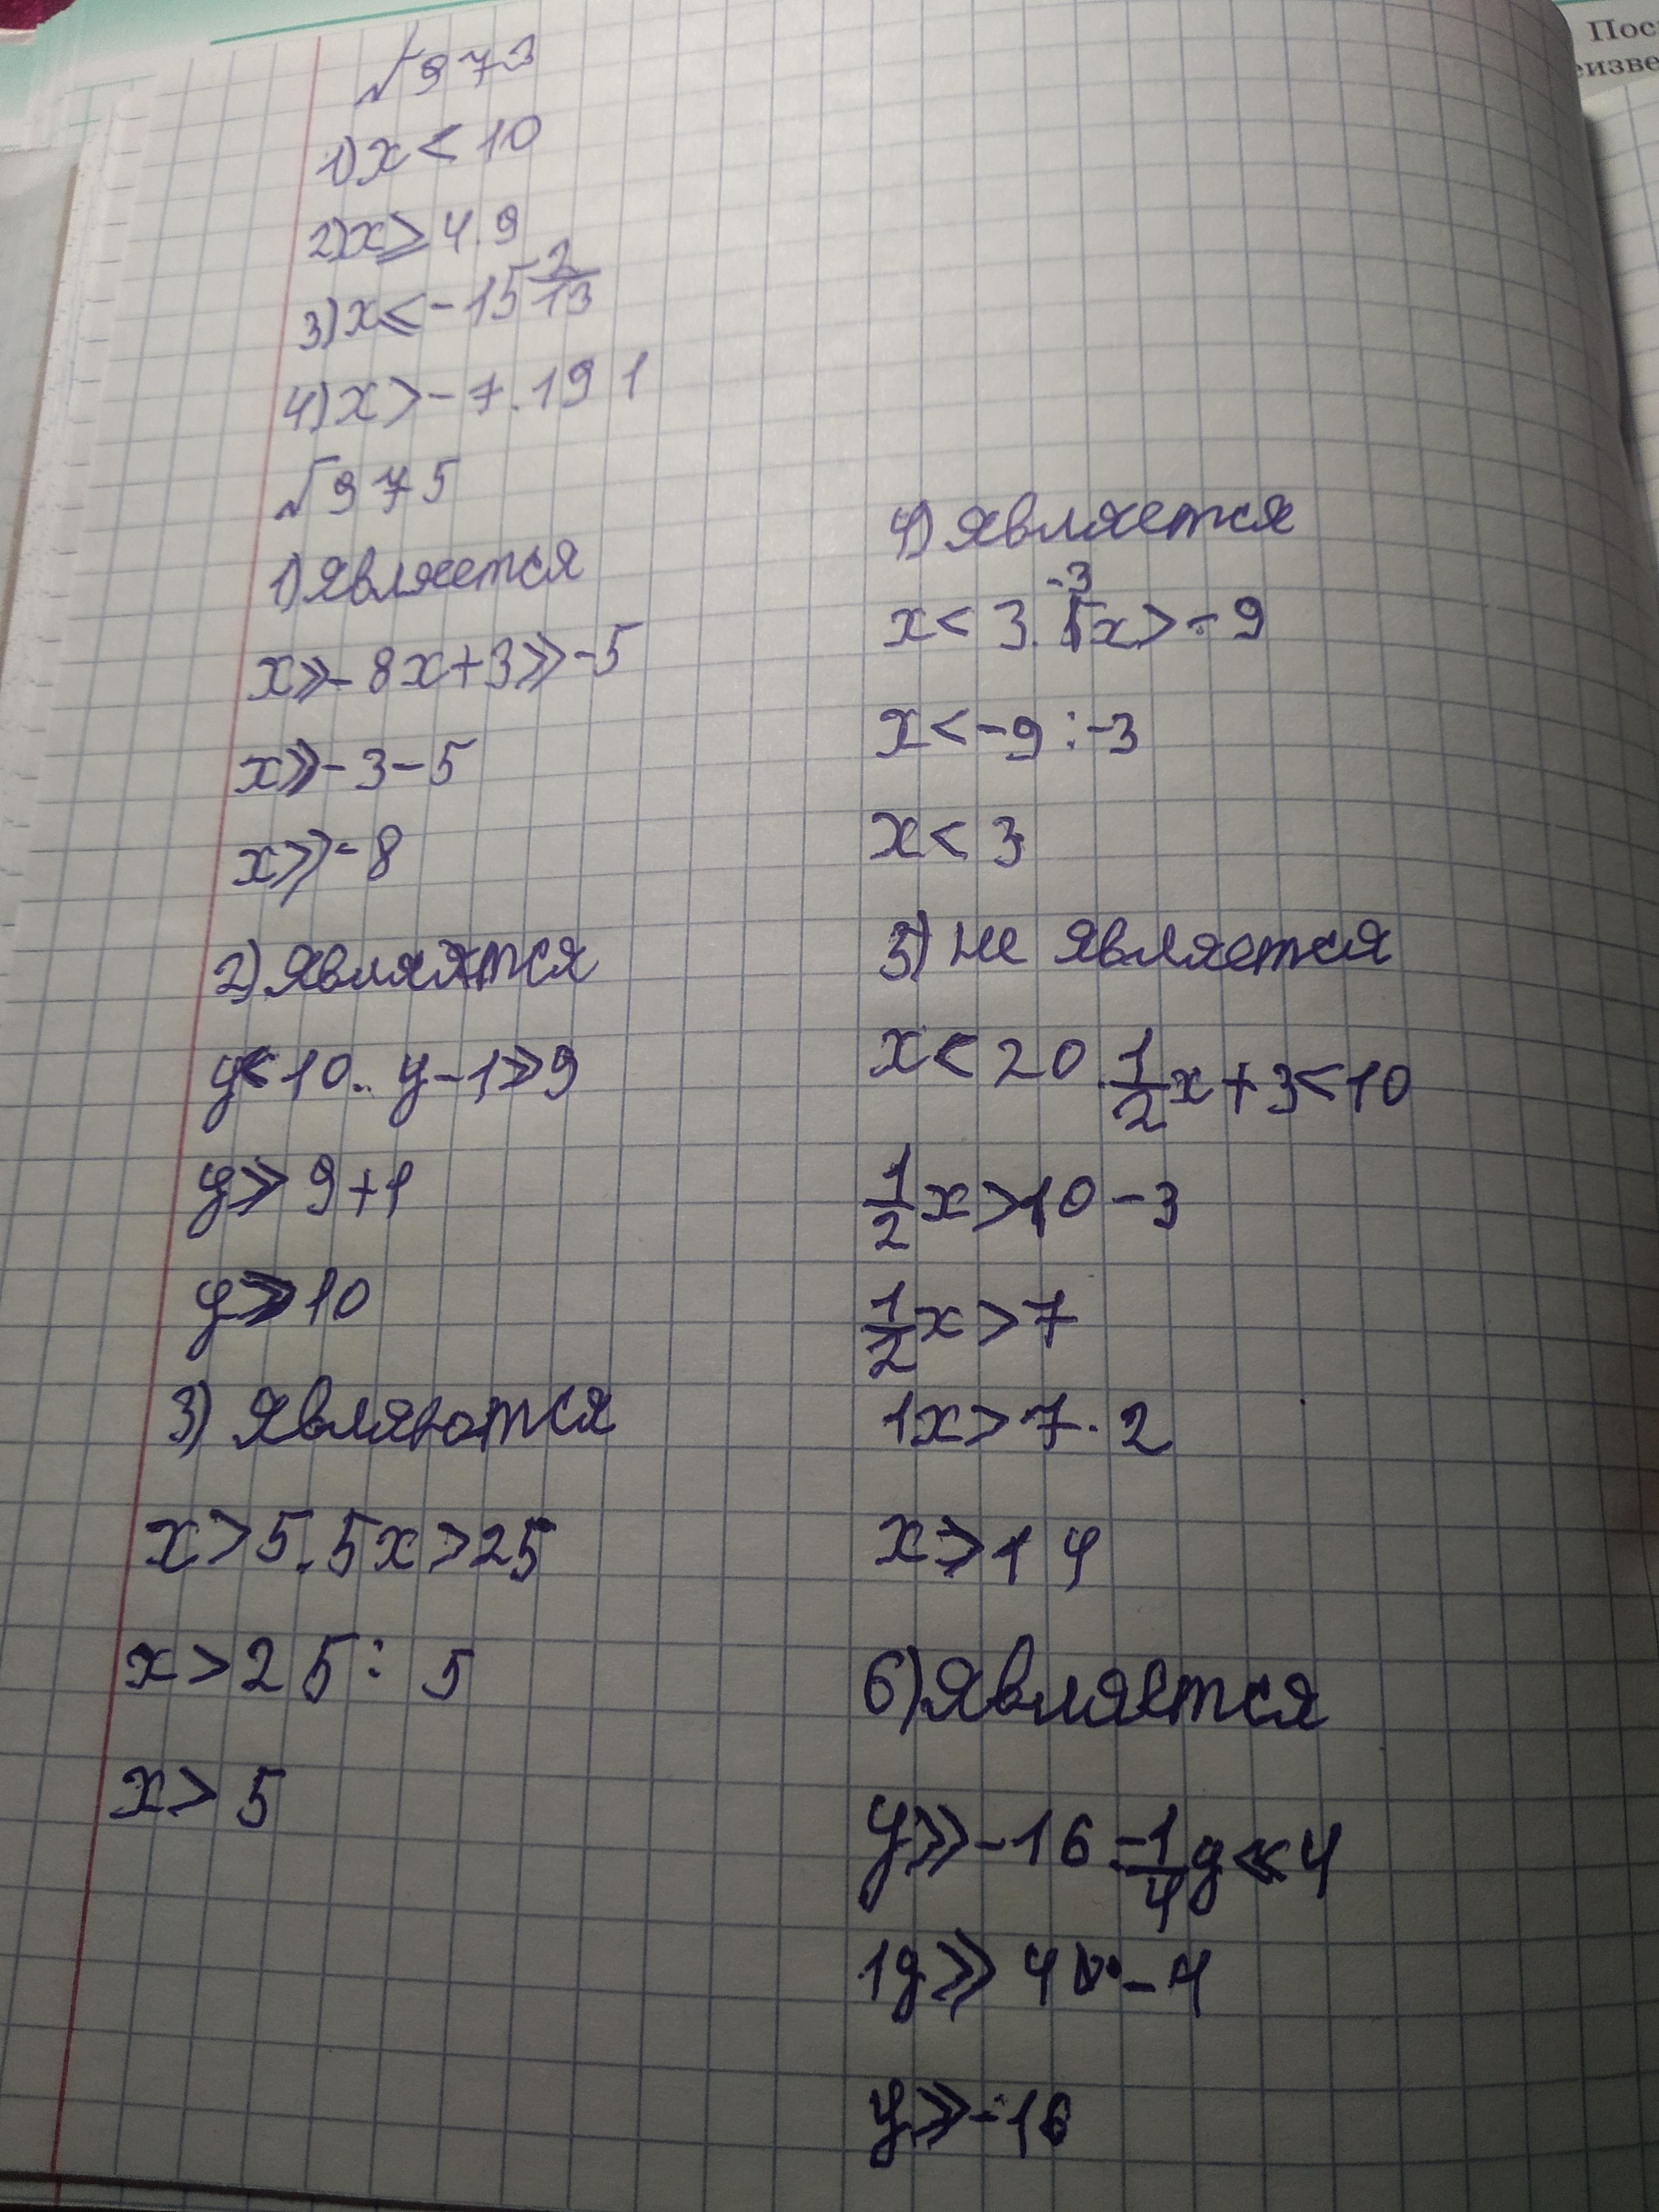 №973
1) x < 10
2) x ⩾ 4.9
3) x ⩽ -15 2/13
4) x > -7.191
№975
1) является
x ⩾ -8 x+3 ⩾ -5
x ⩾ -3-5
x ⩾ -8
2) являятся
y ⩽ 10.. y-1 ⩾ 9
y ⩾ 9+1
y ⩾ 10
3) являются
x > 5. 5x > 25
x > 25 : 5
x > 5
4) является
x < 3. -3x > -9
x < -9 : -3
x < 3
5) не является
x < 20. 1/2 x + 3 < 10
1/2 x > 10 - 3
1/2 x > 7
1x > 7 · 2
x > 14
6) является
y ⩾ -16. -1/4 y ⩽ 4
1y ⩾ 4 · -4
y ⩾ -16
Пос
еизве